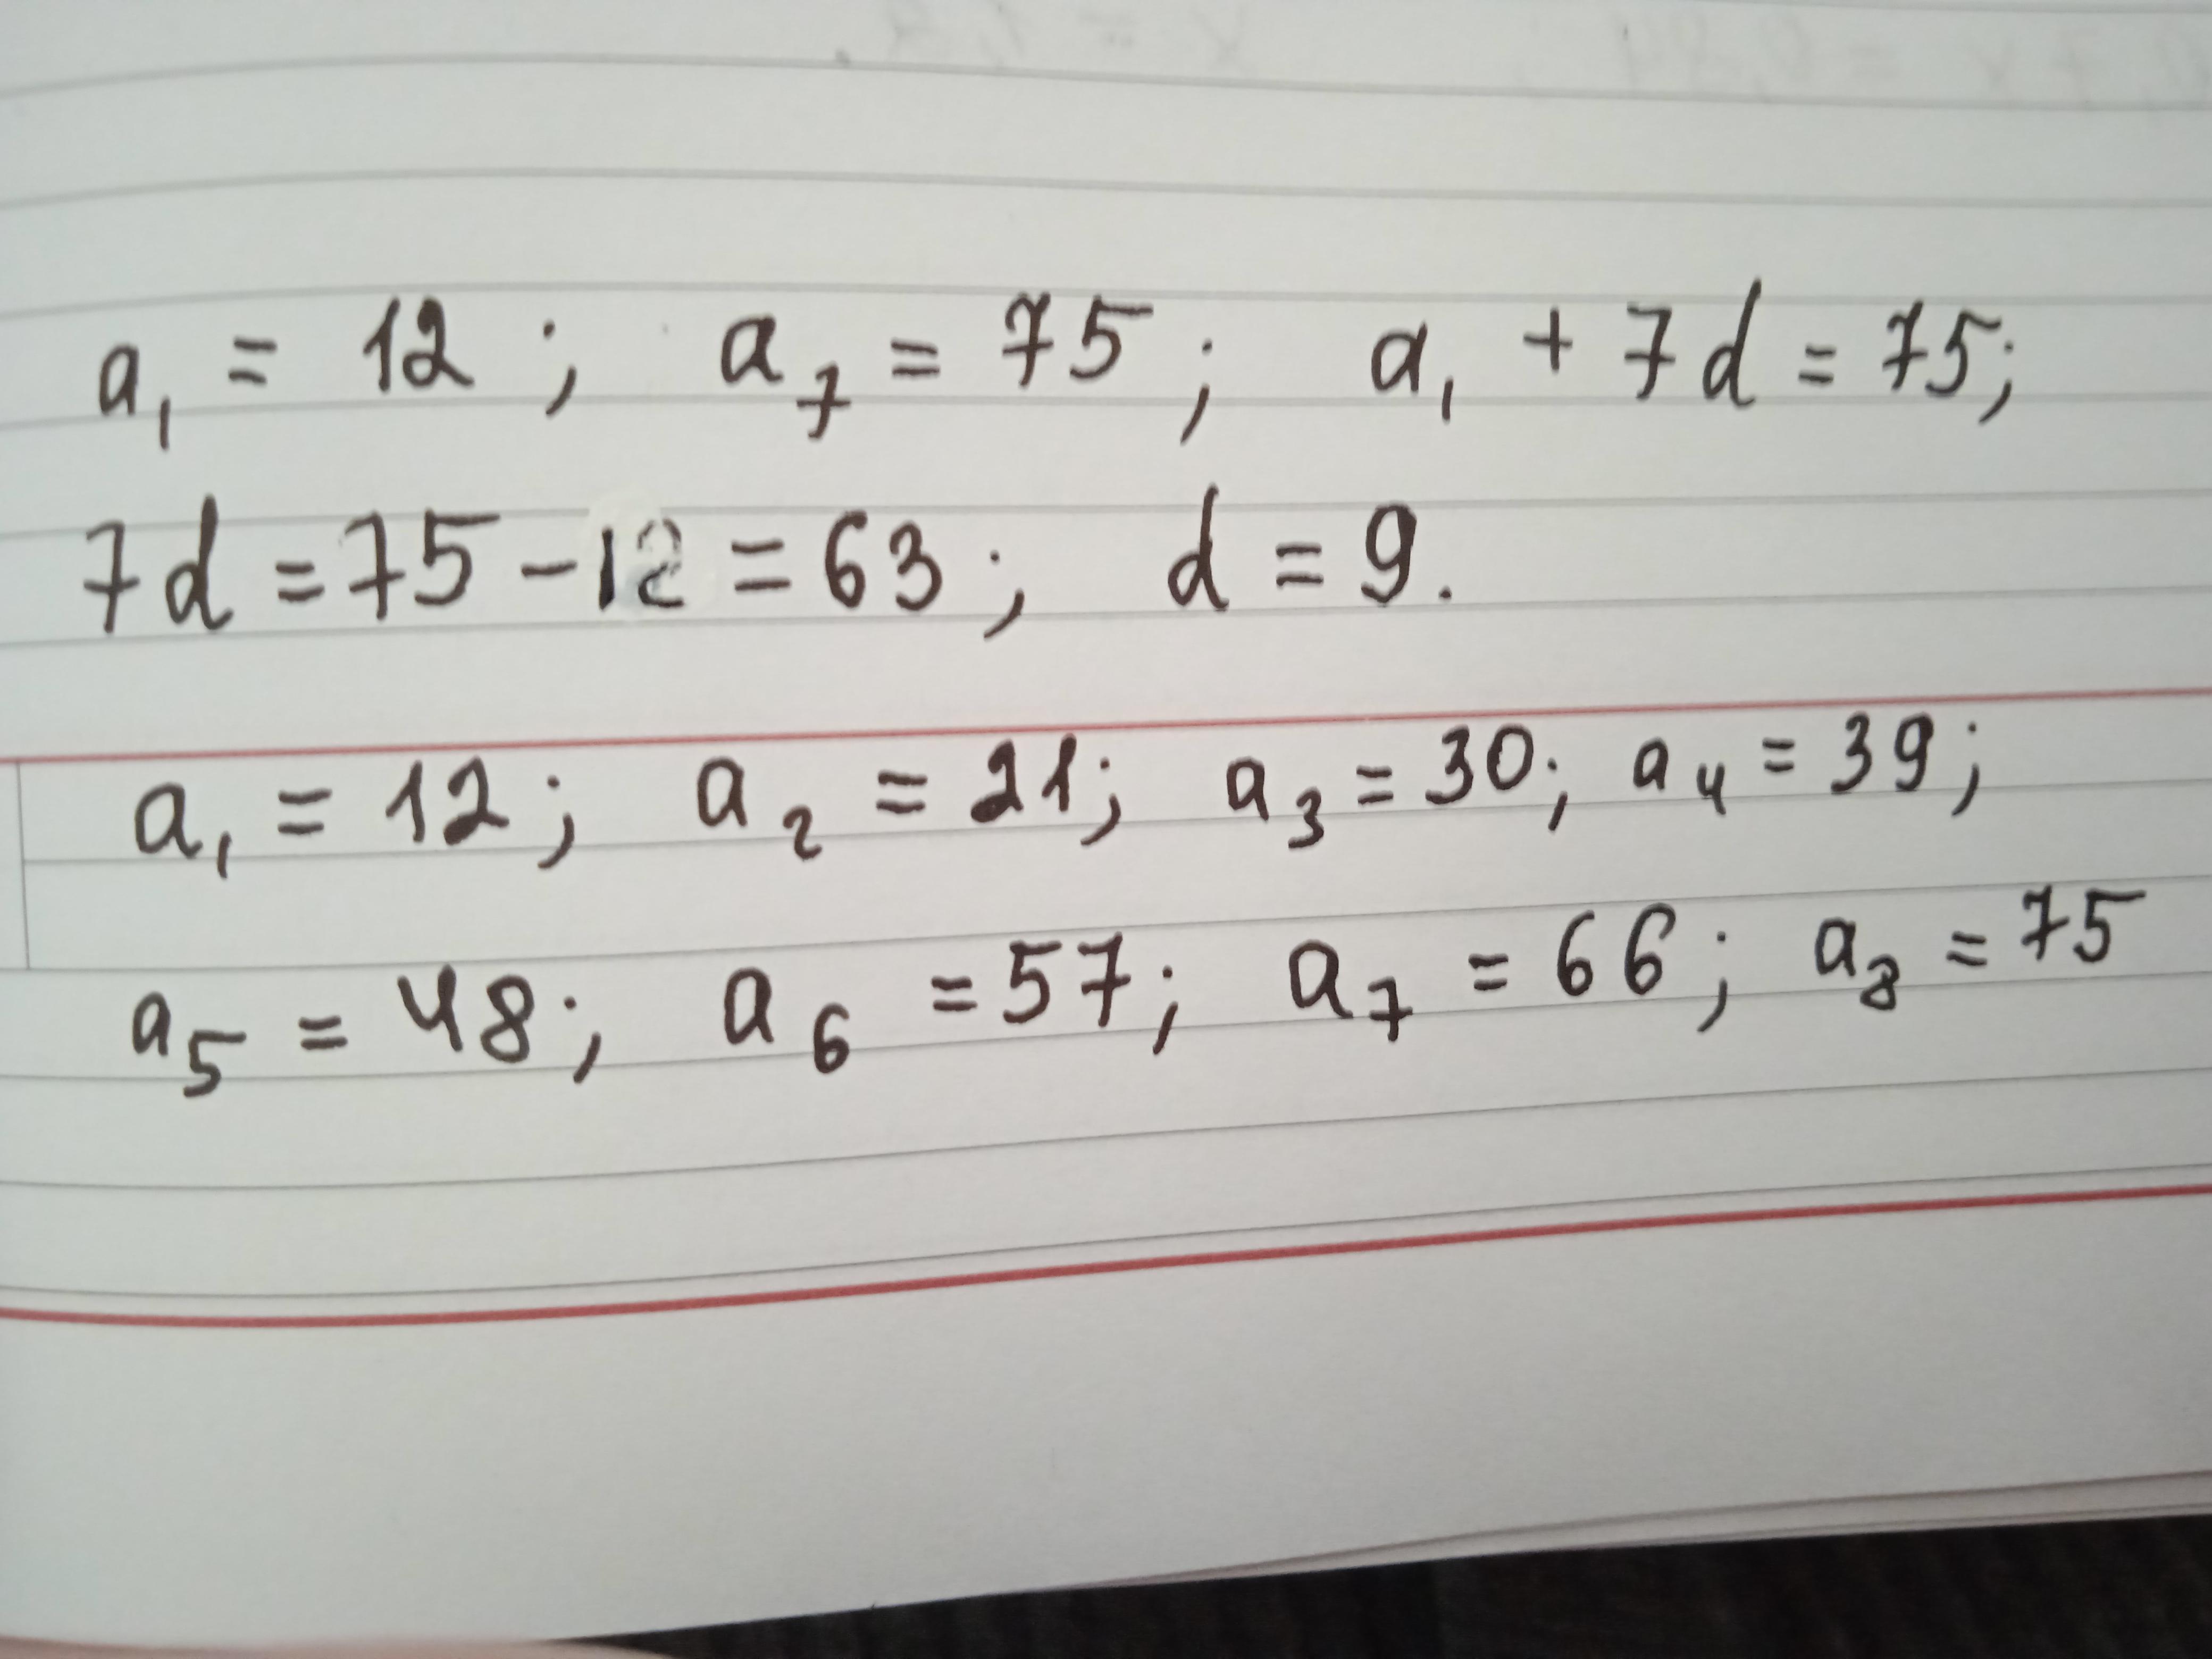 a₁ = 12; a₇ = 75; a₁ + 7d = 75;
7d = 75 - 12 = 63; d = 9.
a₁ = 12; a₂ = 21; a₃ = 30; a₄ = 39;
a₅ = 48; a₆ = 57; a₇ = 66; a₈ = 75